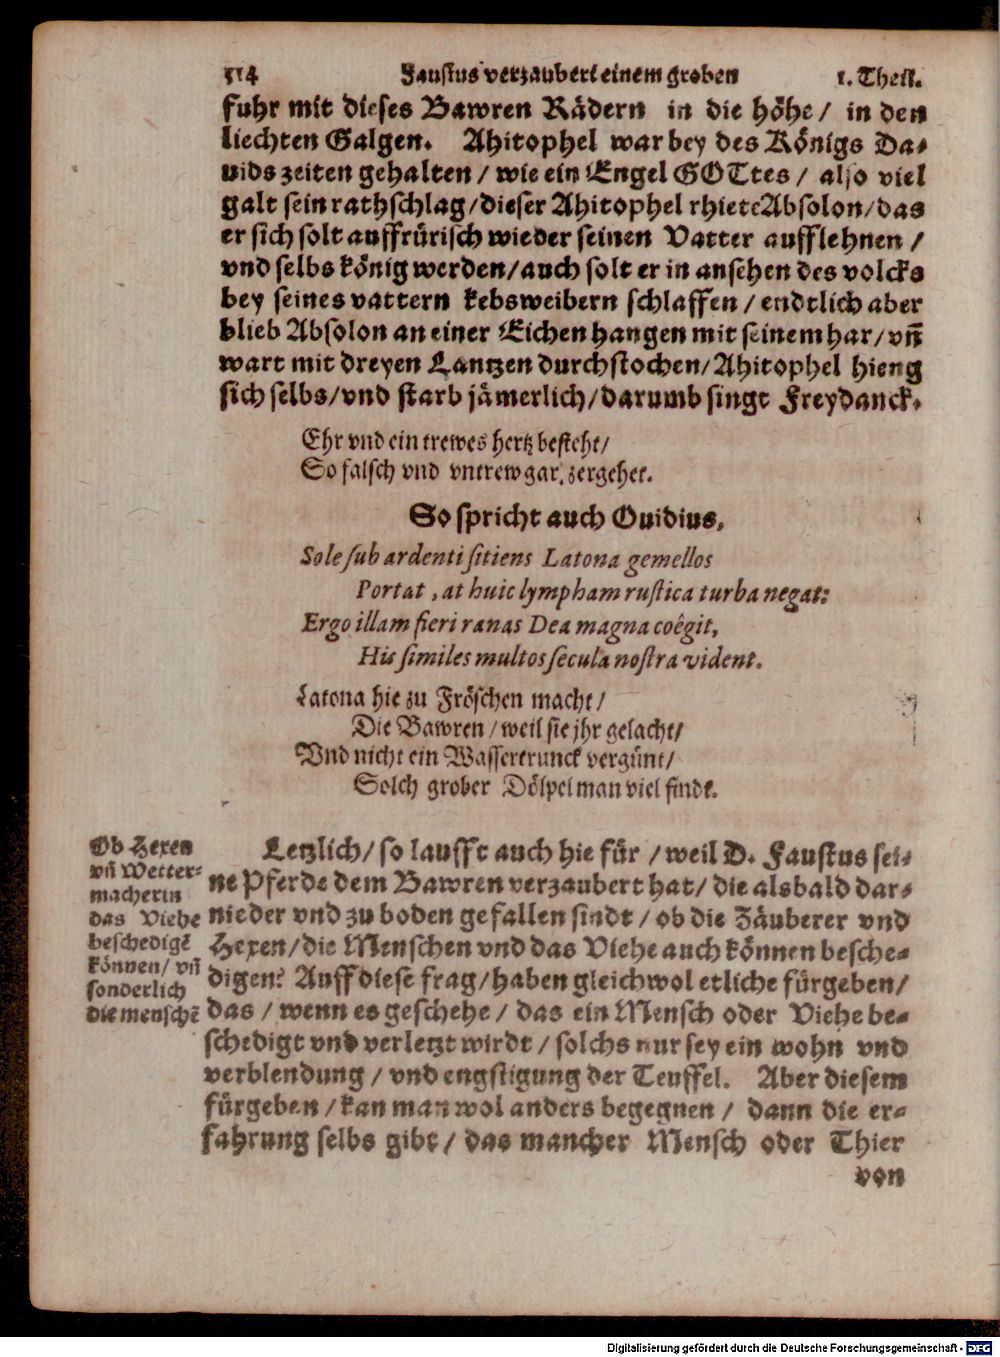 514 Faustus verzaubert einem groben 1. Theil.
fuhr mit dieses Bawren Rädern in die höhe / in den
liechten Galgen. Ahitophel war bey des Königs Da-
uids zeiten gehalten / wie ein Engel GOTtes / also viel
galt sein rathschlag / dieser Ahitophel rhiete Absolon / das
er sich solt auffrürisch wieder seinen Vatter aufflehnen /
vnd selbs könig werden / auch solt er in ansehen des volcks
bey seines vattern kebsweibern schlaffen / endtlich aber
blieb Absolon an einer Eichen hangen mit seinem har / vñ
wart mit dreyen Lantzen durchstochen / Ahitophel hieng
sich selbs / vnd starb jämerlich / darumb singt Freydanck.
Ehr vnd ein trewes hertz besteht /
So falsch vnd vntrew gar zergehet.
So spricht auch Ouidius,
Sole sub ardenti sitiens Latona gemellos
Portat, at huic lympham rustica turba negat:
Ergo illam fieri ranas Dea magna coêgit,
His similes multos secula nostra vident.
Latona hie zu Fröschen macht /
Die Bawren / weil sie jhr gelacht /
Vnd nicht ein Wassertrunck vergünt /
Solch grober Dölpel man viel findt.
Ob Hexen
vñ Wetter-
macherin
das Viehe
beschedigẽ
können / vñ
sonderlich
die menschẽ
Letzlich / so laufft auch hie für / weil D. Faustus sei-
ne Pferde dem Bawren verzaubert hat / die alsbald dar-
nieder vnd zu boden gefallen sindt / ob die Zäuberer vnd
Hexen / die Menschen vnd das Viehe auch können besche-
digen? Auff diese frag / haben gleichwol etliche fürgeben /
das / wenn es geschehe / das ein Mensch oder Viehe be-
schedigt vnd verletzt wirdt / solchs nur sey ein wohn vnd
verblendung / vnd engstigung der Teuffel. Aber diesem
fürgeben / kan man wol anders begegnen / dann die er-
fahrung selbs gibt / das mancher Mensch oder Thier
von
Digitalisierung gefördert durch die Deutsche Forschungsgemeinschaft - DFG